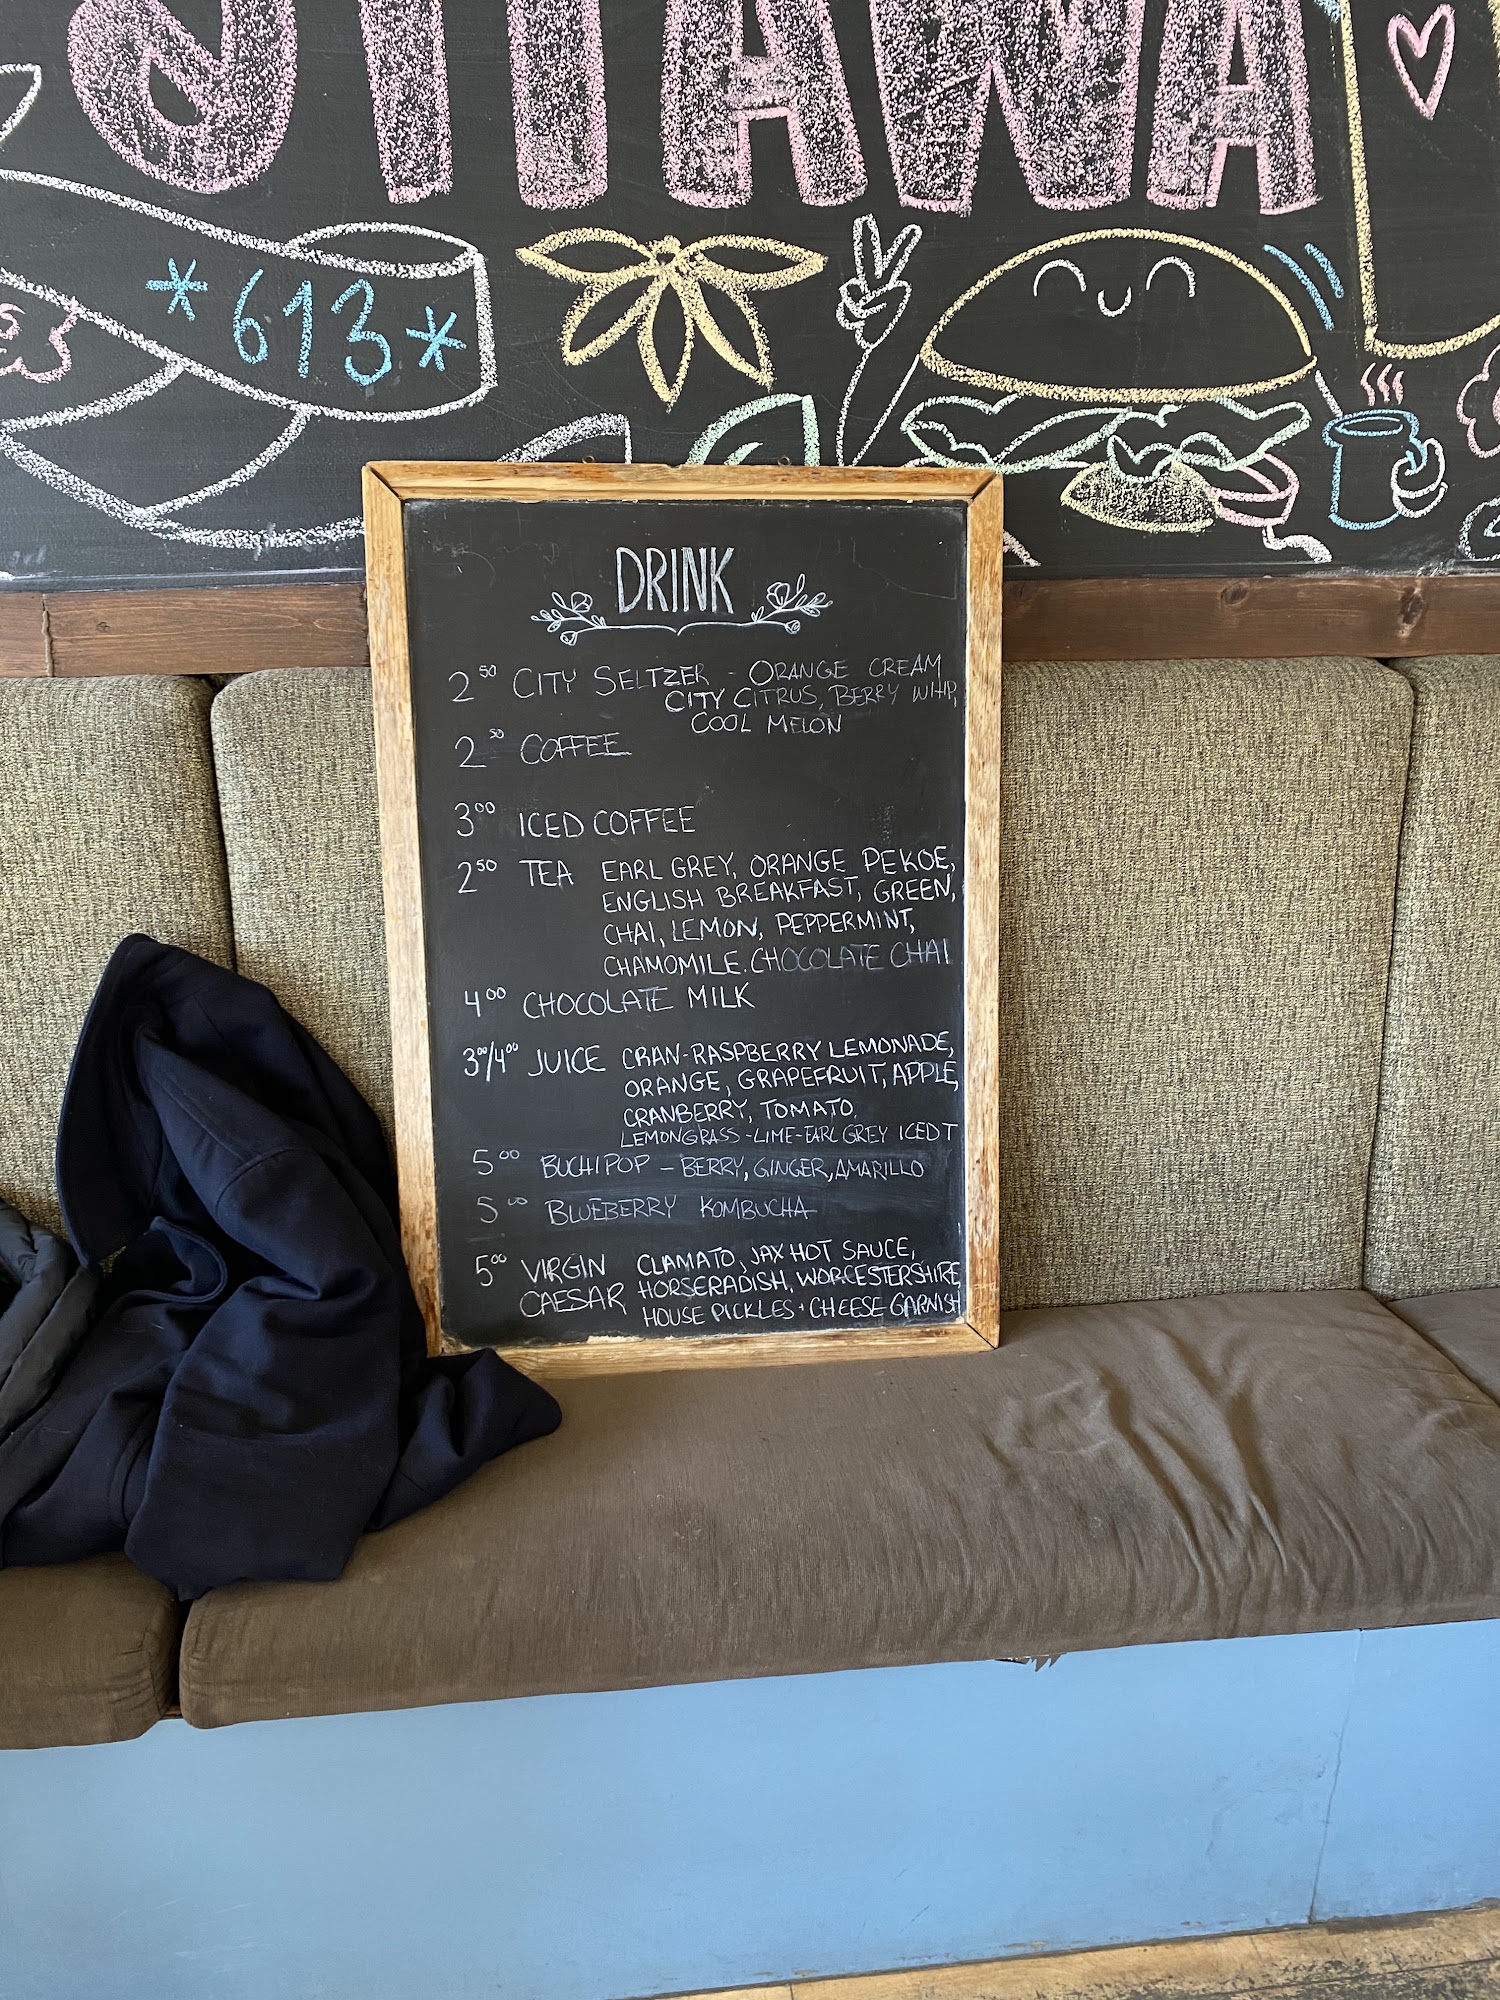 OTTAWA
*613*
DRINK
2.50 CITY SELTZER - ORANGE CREAM
CITY CITRUS, BERRY WHIP,
COOL MELON
2.50 COFFEE
3.00 ICED COFFEE
2.50 TEA EARL GREY, ORANGE PEKOE,
ENGLISH BREAKFAST, GREEN,
CHAI, LEMON, PEPPERMINT,
CHAMOMILE. CHOCOLATE CHAI
4.00 CHOCOLATE MILK
3.00/4.00 JUICE CRAN-RASPBERRY LEMONADE,
ORANGE, GRAPEFRUIT, APPLE,
CRANBERRY, TOMATO,
LEMONGRASS-LIME-EARL GREY ICED T
5.00 BUCHIPOP - BERRY, GINGER, AMARILLO
5.00 BLUEBERRY KOMBUCHA
5.00 VIRGIN CLAMATO, JAX HOT SAUCE,
CAESAR HORSERADISH, WORCESTERSHIRE,
HOUSE PICKLES + CHEESE GARNISH